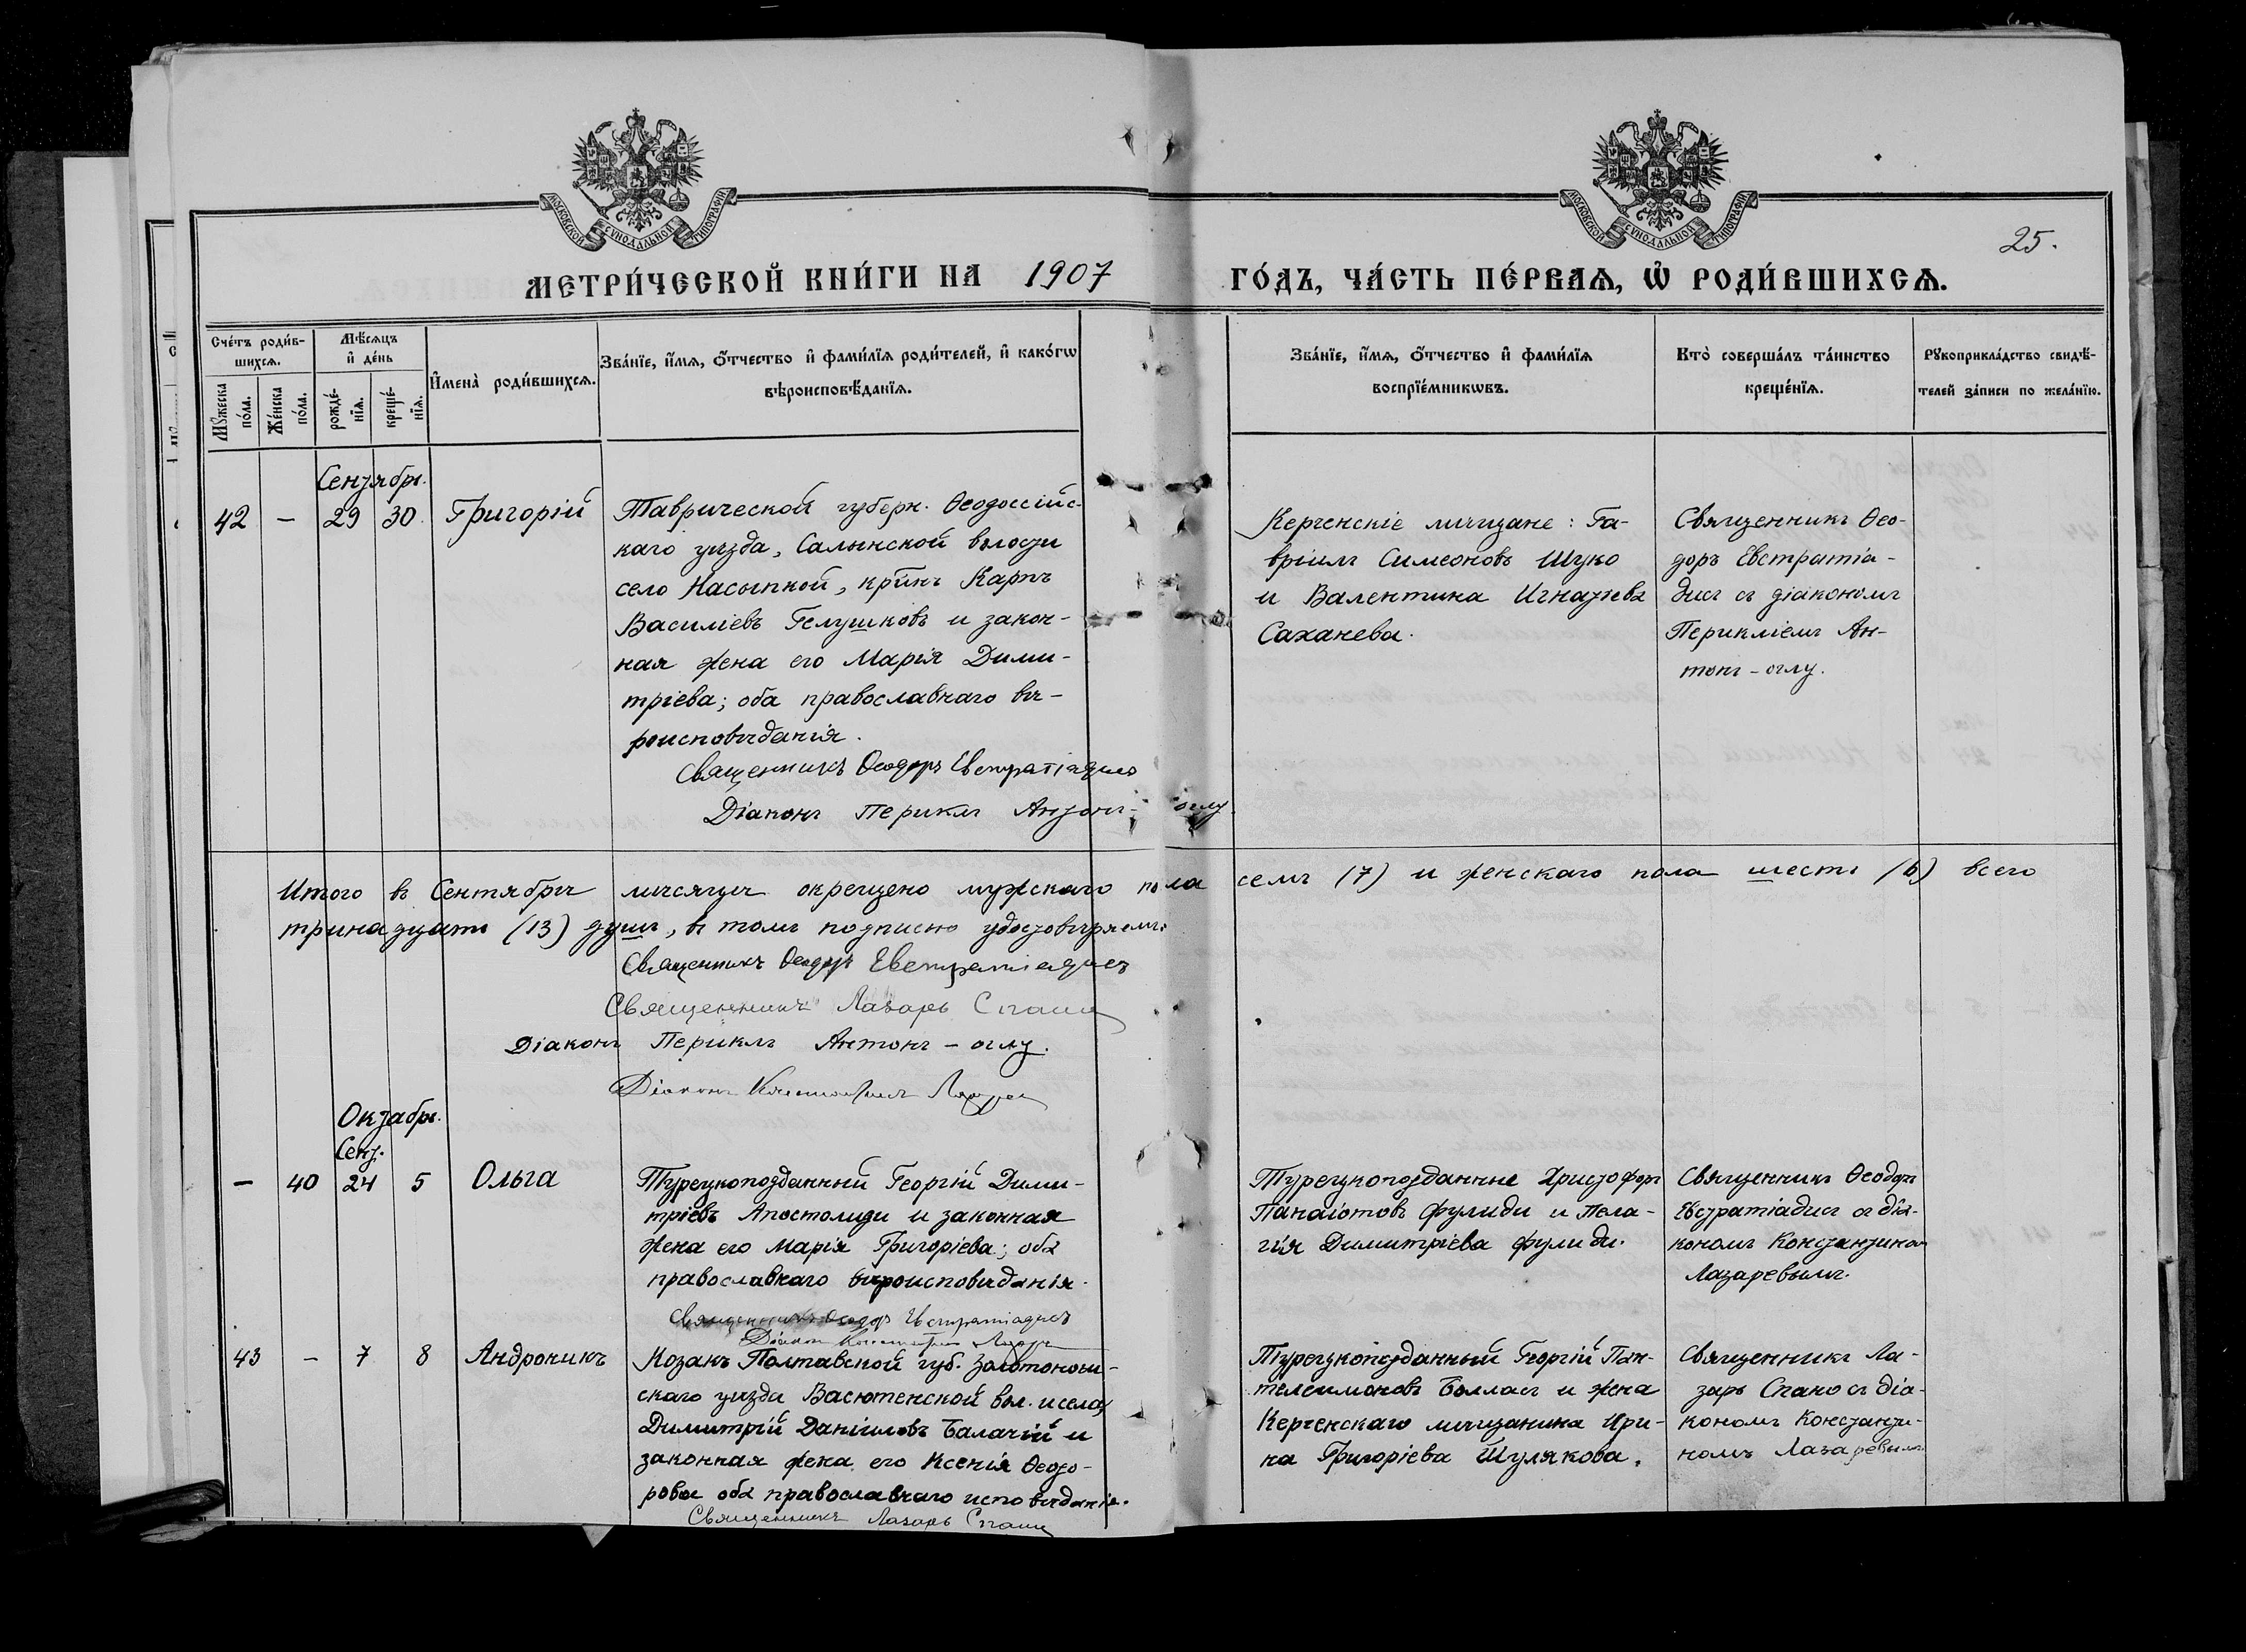 МОСКОВСКОЙ СѴНОДАЛЬНОЙ ТИПОГРАФІИ
МОСКОВСКОЙ СѴНОДАЛЬНОЙ ТИПОГРАФІИ
25.
МЕТРИ́ЧЕСКОЙ КНИ́ГИ НА 1907 ГО́ДЪ, ЧА́СТЬ ПЕ́РВАѦ, Ѽ РОДИ́ВШИХСѦ.
Сче́тъ роди́в-
шихсѧ.
Мꙋ́жеска
по́ла.
Же́нска
по́ла.
Мѣ́сѧцъ
и҆ де́нь
рожде́-
нїѧ.
креще́-
нїѧ.
И҆мена̀ роди́вшихсѧ.
Зва́нїе, и҆́мѧ, ѻ҆́тчество и҆ фами́лїѧ роди́телей, и҆ како́гѡ
вѣроисповѣ́данїѧ.
Зва́нїе, и҆́мѧ, ѻ҆́тчество и҆ фами́лїѧ
воспрїе́мникѡвъ.
Кто̀ соверша́лъ та́инство
креще́нїѧ.
Рꙋкоприкла́дство свидѣ́-
телей за́писи по жела́нїю.
Сентябрь.
42 — 29 30 Григорій
Таврической губерн. Ѳеодоссійс-
каго уѣзда, Салынской волости
село Насыпкой, кр̃нъ Карпъ
Василіевъ Гелушковъ и закон-
ная жена его Марія Дими-
тріева; оба православнаго вѣ-
роисповѣданія.
Священникъ Ѳеодоръ Евстратіадисъ
Діаконъ Периклъ Антонъ-оглу.
Керченскіе мѣщане: Га-
вріилъ Симеоновъ Шуко
и Валентина Игнатіева
Саханева.
Священникъ Ѳео-
доръ Евстратіа-
дисъ съ діакономъ
Перикліемъ Ан-
тонъ-оглу.
Итого въ Сентябрѣ мѣсяцѣ окрещено мужскаго пола семь (7) и женскаго пола шесть (6) всего
тринадцать (13) душъ, въ томъ подписью удостовѣряемъ:
Священникъ Ѳеодоръ Евстратіадисъ
Священникъ Лазарь Спано
Діаконъ Периклъ Антонъ-оглу.
Діаконъ Константинъ Лазаревъ
Октябрь.
Сент.
— 40 24 5 Ольга
Турецкоподданный Георгій Дими-
тріевъ Апостолиди и законная
жена его Марія Григоріева; оба
православнаго вѣроисповѣданія.
Священникъ Ѳеодоръ Евстратіадисъ
Діаконъ Константинъ Лазаревъ
Турецкоподданные Христофоръ
Панаіотовъ Фулиди и Пела-
гія Димитріева Фулиди.
Священникъ Ѳеодоръ
Евстратіадисъ съ діа-
кономъ Константиномъ
Лазаревымъ.
43 — 7 8 Андроникъ
Козакъ Полтавской губ. Золотонош-
скаго уѣзда Васютенской вол. и села,
Димитрій Даніиловъ Балачій и
законная жена его Ксенія Ѳеодо-
рова оба православнаго исповѣданія.
Священникъ Лазарь Спано
Турецкоподданный Георгій Пан-
телеимоновъ Балласъ и жена
Керченскаго мѣщанина Ири-
на Григоріева Шулякова.
Священникъ Ла-
зарь Спано съ діа-
кономъ Константи-
номъ Лазаревымъ